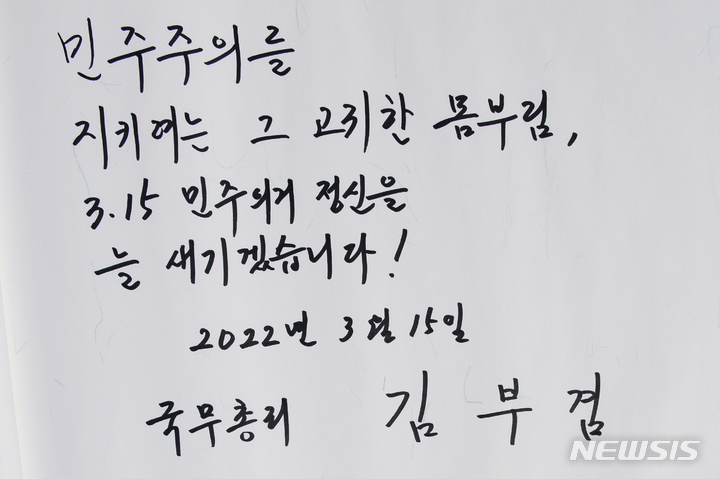 민주주의를
지키려는 그 고귀한 몸부림,
3.15 민주의거 정신을
늘 새기겠습니다!
2022년 3월 15일
국무총리 김부겸
NEWSIS